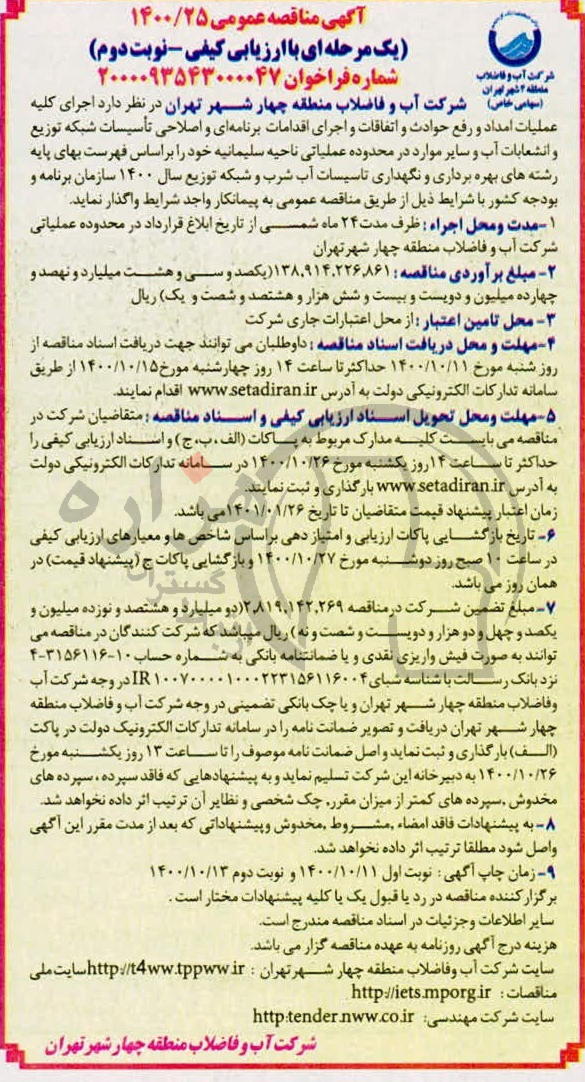 آگهی مناقصه عمومی ۱۴۰۰/۲۵
(یک مرحله ای با ارزیابی کیفی - نوبت دوم)
شماره فراخوان ۲۰۰۰۰۹۳۵۴۳۰۰۰۰۴۷
شرکت آب و فاضلاب
منطقه ۴ شهر تهران
(سهامی خاص)
شرکت آب و فاضلاب منطقه چهار شهر تهران در نظر دارد اجرای کلیه
عملیات امداد و رفع حوادث و اتفاقات و اجرای اقدامات برنامه‌ای و اصلاحی تأسیسات شبکه توزیع
و انشعابات آب و سایر موارد در محدوده عملیاتی ناحیه سلیمانیه خود را براساس فهرست بهای پایه
رشته های بهره برداری و نگهداری تاسیسات آب شرب و شبکه توزیع سال ۱۴۰۰ سازمان برنامه و
بودجه کشور با شرایط ذیل از طریق مناقصه عمومی به پیمانکار واجد شرایط واگذار نماید.
۱-مدت ومحل اجراء : ظرف مدت ۲۴ ماه شمسی از تاریخ ابلاغ قرارداد در محدوده عملیاتی
شرکت آب و فاضلاب منطقه چهار شهر تهران
۲- مبلغ برآوردی مناقصه : ۱۳۸,۹۱۴,۲۲۶,۸۶۱(یکصد و سی و هشت میلیارد و نهصد و
چهارده میلیون و دویست و بیست و شش هزار و هشتصد و شصت و یک) ریال
۳- محل تامین اعتبار : از محل اعتبارات جاری شرکت
۴-مهلت و محل دریافت اسناد مناقصه : داوطلبان می توانند جهت دریافت اسناد مناقصه از
روز شنبه مورخ ۱۴۰۰/۱۰/۱۱ حداکثر تا ساعت ۱۴ روز چهارشنبه مورخ ۱۴۰۰/۱۰/۱۵ از طریق
سامانه تدارکات الکترونیکی دولت به آدرس www.setadiran.ir اقدام نمایند.
۵-مهلت ومحل تحویل اسناد ارزیابی کیفی و اسناد مناقصه : متقاضیان شرکت در
مناقصه می بایست کلیه مدارک مربوط به پاکات (الف ، ب، ج) و اسناد ارزیابی کیفی را
حداکثر تا ساعت ۱۴ روز یکشنبه مورخ ۱۴۰۰/۱۰/۲۶ در سامانه تدارکات الکترونیکی دولت
به آدرس www.setadiran.ir بارگذاری و ثبت نمایند.
زمان اعتبار پیشنهاد قیمت متقاضیان تا تاریخ ۱۴۰۱/۰۱/۲۶ می باشد.
۶- تاریخ بازگشایی پاکات ارزیابی و امتیاز دهی براساس شاخص ها و معیارهای ارزیابی کیفی
در ساعت ۱۰ صبح روز دوشنبه مورخ ۱۴۰۰/۱۰/۲۷ و بازگشایی پاکات ج (پیشنهاد قیمت) در
همان روز می باشد.
۷- مبلغ تضمین شرکت در مناقصه ۲,۸۱۹,۱۴۲,۲۶۹(دو میلیارد و هشتصد و نوزده میلیون و
یکصد و چهل و دو هزار و دویست و شصت و نه) ریال میباشد که شرکت کنندگان در مناقصه می
توانند به صورت فیش واریزی نقدی و یا ضمانتنامه بانکی به شماره حساب ۱۰-۳۱۵۶۱۱۶-۴
نزد بانک رسالت با شناسه شبای IR۱۰۰۷۰۰۰۰۱۰۰۰۲۲۳۱۵۶۱۱۶۰۰۴ در وجه شرکت آب
وفاضلاب منطقه چهار شهر تهران و یا چک بانکی تضمینی در وجه شرکت آب و فاضلاب منطقه
چهار شهر تهران دریافت و تصویر ضمانت نامه را در سامانه تدارکات الکترونیک دولت در پاکت
(الف) بارگذاری و ثبت نماید و اصل ضمانت نامه موصوف را تا ساعت ۱۳ روز یکشنبه مورخ
۱۴۰۰/۱۰/۲۶ به دبیرخانه این شرکت تسلیم نماید و به پیشنهادهایی که فاقد سپرده ، سپرده های
مخدوش ،سپرده های کمتر از میزان مقرر, چک شخصی و نظایر آن ترتیب اثر داده نخواهد شد.
۸- به پیشنهادات فاقد امضاء ،مشروط ,مخدوش وپیشنهاداتی که بعد از مدت مقرر این آگهی
واصل شود مطلقا ترتیب اثر داده نخواهد شد.
۹- زمان چاپ آگهی : نوبت اول ۱۴۰۰/۱۰/۱۱ و نوبت دوم ۱۴۰۰/۱۰/۱۳
برگزارکننده مناقصه در رد یا قبول یک یا کلیه پیشنهادات مختار است .
سایر اطلاعات وجزئیات در اسناد مناقصه مندرج است.
هزینه درج آگهی روزنامه به عهده مناقصه گزار می باشد.
سایت شرکت آب وفاضلاب منطقه چهار شهر تهران : http://t4ww.tppww.ir سایت ملی
مناقصات : http://iets.mporg.ir
سایت شرکت مهندسی: http:tender.nww.co.ir
شرکت آب و فاضلاب منطقه چهار شهر تهران